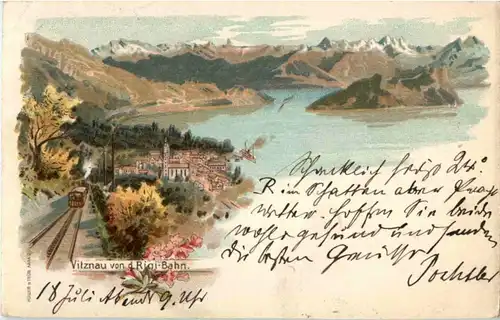 Schrecklich heiß 24°
R im Schatten aber Pracht
wetter. hoffen Sie beide
wohl & gesund und senden
die besten Grüsse
Vitznau von d. Rigi-Bahn.
18 Juli Abends 9 Uhr